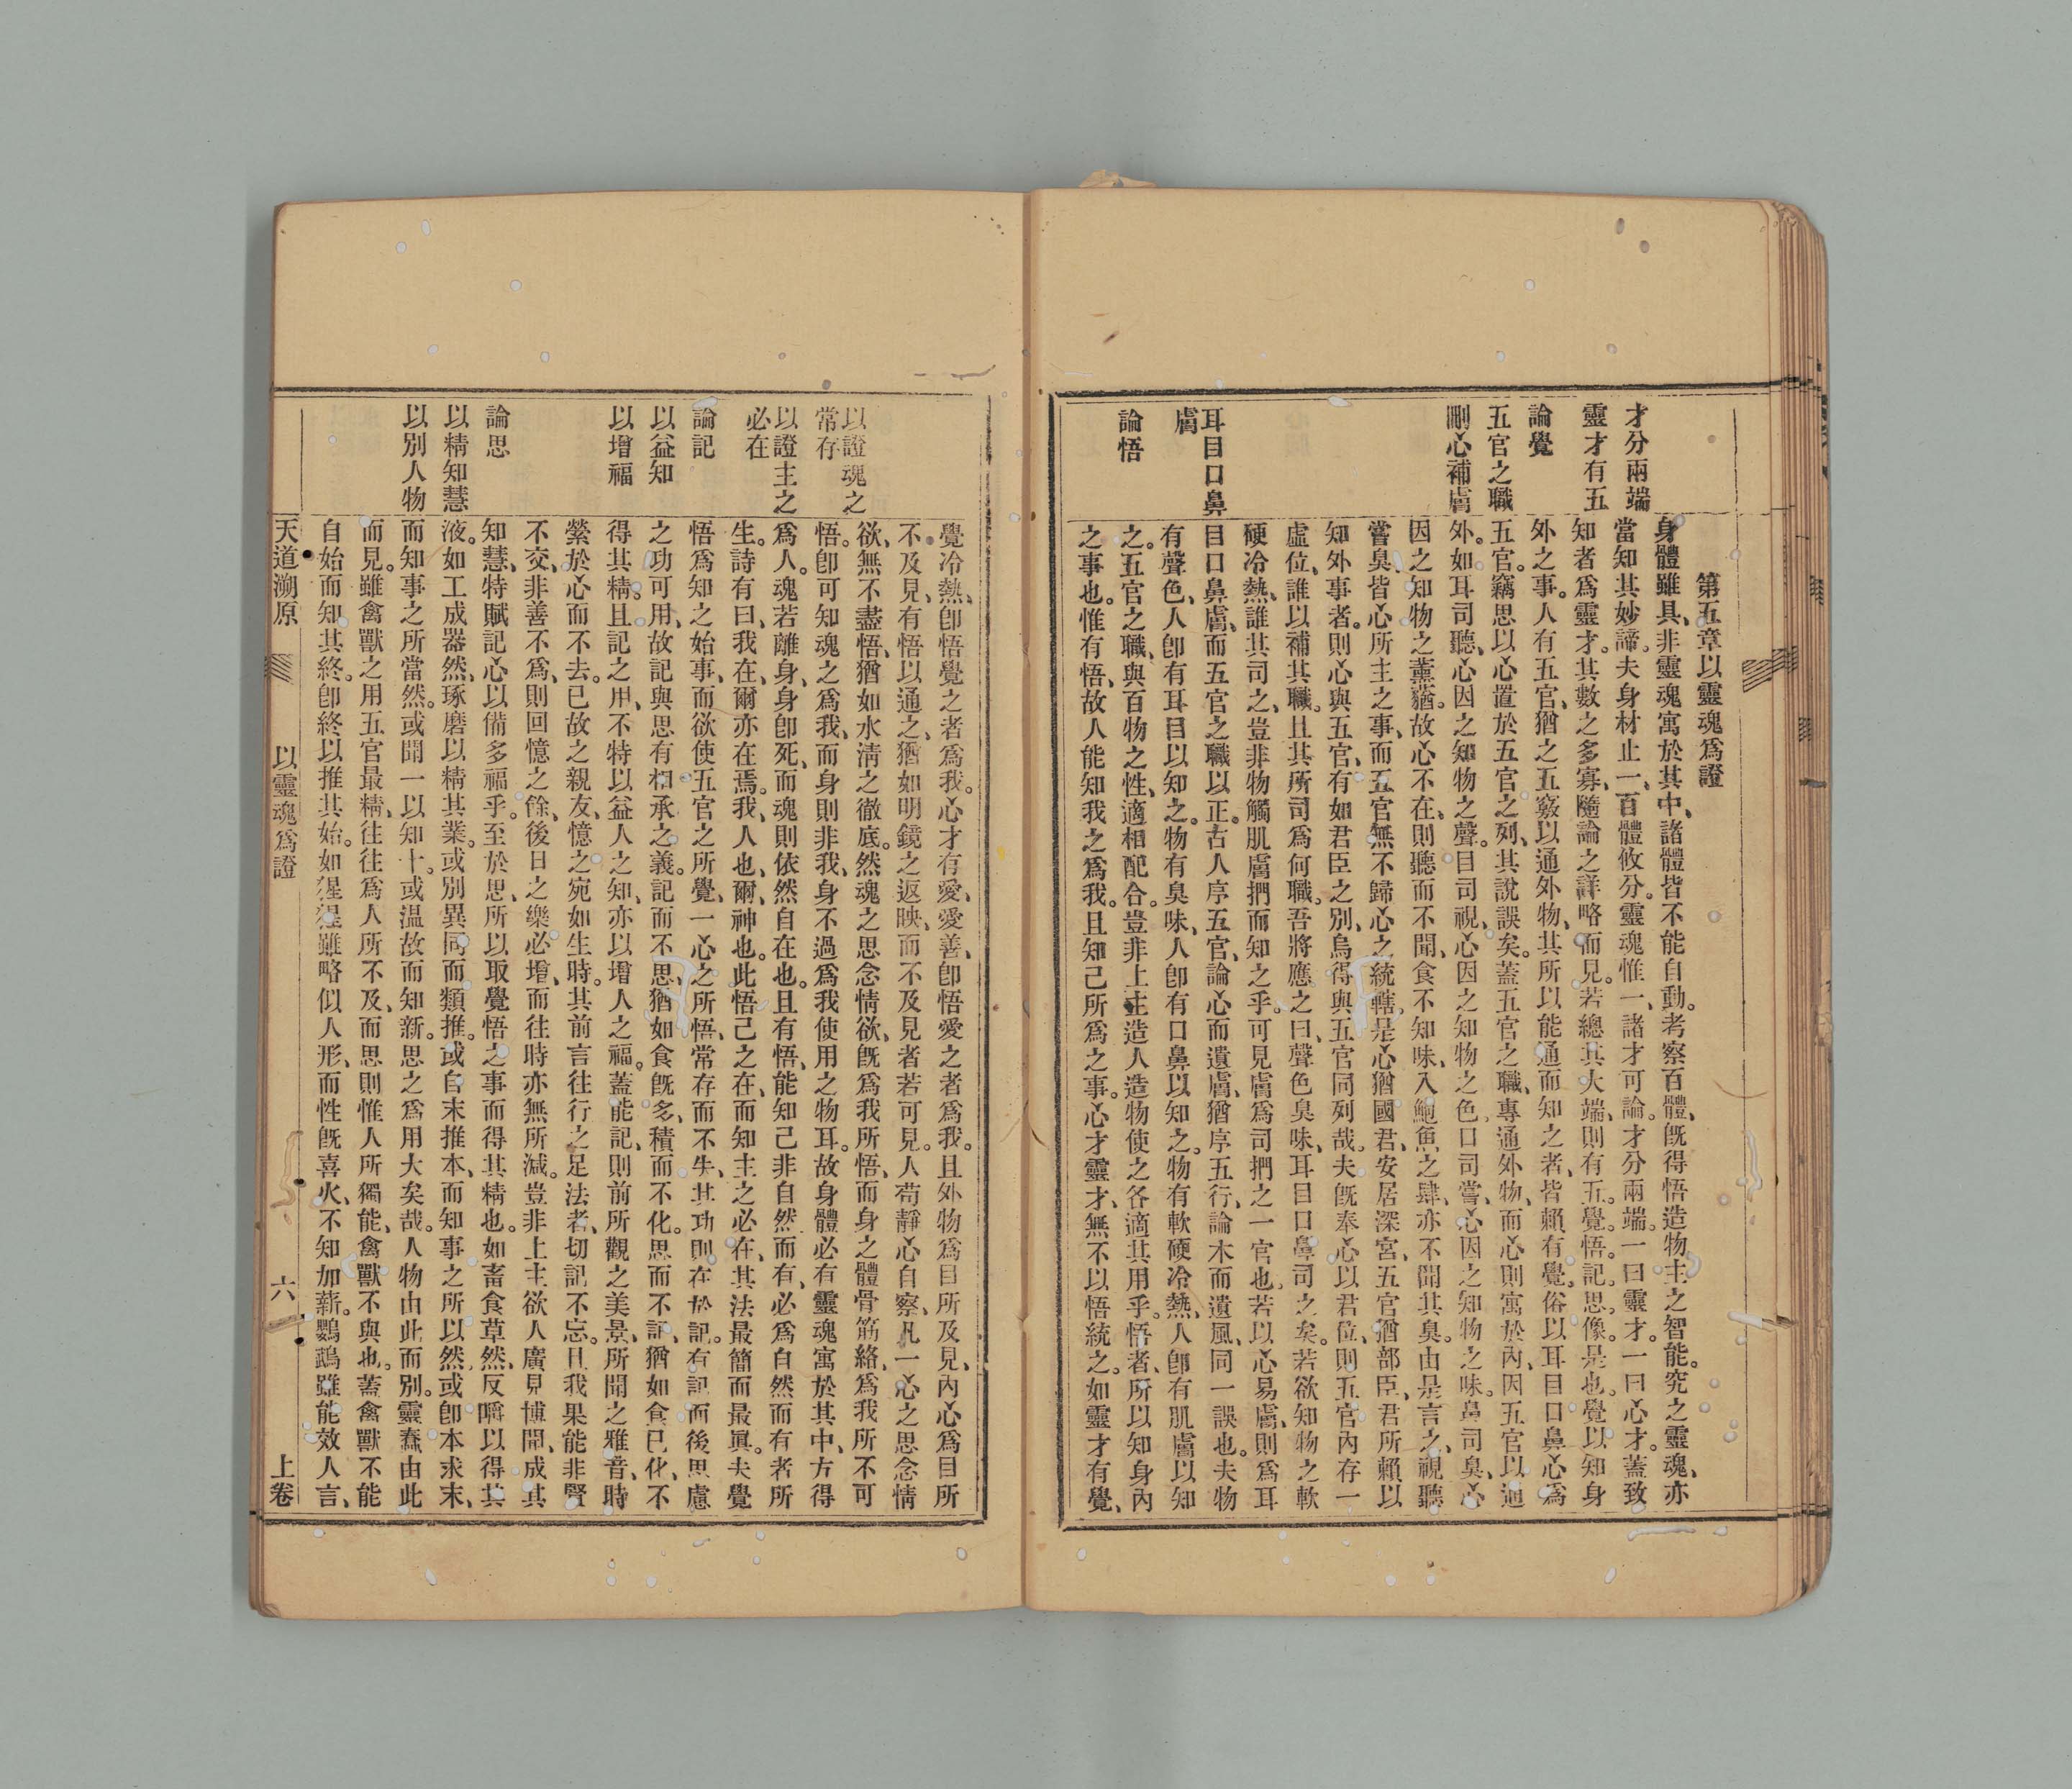 第五章以靈魂爲證
才分兩端
靈才有五
論覺
五官之職
刪心補膚
耳目口鼻
膚
論悟
身體雖具、非靈魂寓於其中、諸體皆不能自動。考察百體、旣得悟造物主之智能。究之靈魂、亦
當知其妙諦。夫身材止一、百體攸分。靈魂惟一、諸才可論。才分兩端。一曰靈才。一曰心才。蓋致
知者爲靈才。其數之多寡、隨論之詳略而見。若總其大端、則有五。覺。悟。記。思。像。是也。覺以知身
外之事、人有五官、猶之五竅以通外物、其所以能通而知之者、皆賴有覺。俗以耳目口鼻心爲
五官。竊思以心置於五官之列、其說誤矣。蓋五官之職、專通外物、而心則寓於內、因五官以通
外。如耳司聽、心因之知物之聲。目司視、心因之知物之色。口司嘗、心因之知物之味。鼻司臭、心
因之知物之薰蕕。故心不在、則聽而不聞、食不知味、入鮑魚之肆、亦不聞其臭。由是言之、視聽
嘗臭、皆心所主之事、而五官無不歸心之統轄。是心猶國君、安居深宮、五官猶部臣、君所賴以
知外事者。則心與五官、有如君臣之別、烏得與五官同列哉。夫旣奉心以君位、則五官內存一
虛位、誰以補其職。且其所司爲何職。吾將應之曰、聲色臭味、耳目口鼻司之矣。若欲知物之軟
硬冷熱、誰其司之、豈非物觸肌膚捫而知之乎。可見膚爲司捫之一官也。若以心易膚、則爲耳
目口鼻膚、而五官之職以正。古人序五官、論心而遺膚、猶序五行、論木而遺風、同一誤也。夫物
有聲色、人卽有耳目以知之。物有臭味、人卽有口鼻以知之。物有軟硬冷熱、人卽有肌膚以知
之。五官之職、與百物之性、適相配合。豈非上主造人造物使之各適其用乎。悟者、所以知身內
之事也。惟有悟、故人能知我之爲我。且知己所爲之事。心才靈才、無不以悟統之。如靈才有覺、
以證魂之
常存
以證主之
必在
論記
以益知
以增福
論思
以精知慧
以別人物
覺冷熱、卽悟覺之者爲我。心才有愛、愛善、卽悟愛之者爲我。且外物爲目所及見、內心爲目所
不及見、有悟以通之、猶如明鏡之返映、而不及見者若可見。人苟靜心自察、凡一心之思念情
欲、無不盡悟、猶如水清之徹底。然魂之思念情欲、旣爲我所悟、而身之體骨筋絡、爲我所不可
悟。卽可知魂之爲我、而身則非我、身不過爲我使用之物耳。故身體必有靈魂寓於其中、方得
爲人。魂若離身、身卽死、而魂則依然自在也。且有悟、能知己非自然而有、必爲自然而有者所
生。詩有曰、我在、爾亦在焉。我、人也、爾、神也。此悟己之在、而知主之必在、其法最簡而最眞。夫覺
悟爲知之始事、而欲使五官之所覺、一心之所悟、常存而不失、其功則在於記。有記而後思慮
之功可用、故記與思有相承之義。記而不思、猶如食旣多、積而不化。思而不記、猶如食已化、不
得其精。且記之用、不特以益人之知、亦以增人之福。蓋能記、則前所觀之美景、所聞之雅音、時
縈於心而不去。已故之親友、憶之宛如生時。其前言往行之足法者、切記不忘。且我果能非賢
不交、非善不爲、則回憶之餘、後日之樂必增、而往時亦無所減。豈非上主欲人廣見博聞、成其
知慧、特賦記心以備多福乎。至於思、所以取覺悟之事而得其精也。如畜食草然、反嚼以得其
液。如工成器然、琢磨以精其業。或別異同而類推。或自末推本、而知事之所以然。或卽本求末、
而知事之所當然。或聞一以知十。或温故而知新。思之爲用大矣哉。人物由此而別。靈蠢由此
而見。雖禽獸之用五官最精、往往爲人所不及、而思則惟人所獨能、禽獸不與也。蓋禽獸不能
自始而知其終。卽終以推其始。如猩猩雖略似人形、而性旣喜火、不知加薪。鸚鵡雖能效人言、
天道溯原
以靈魂爲證
六
上卷